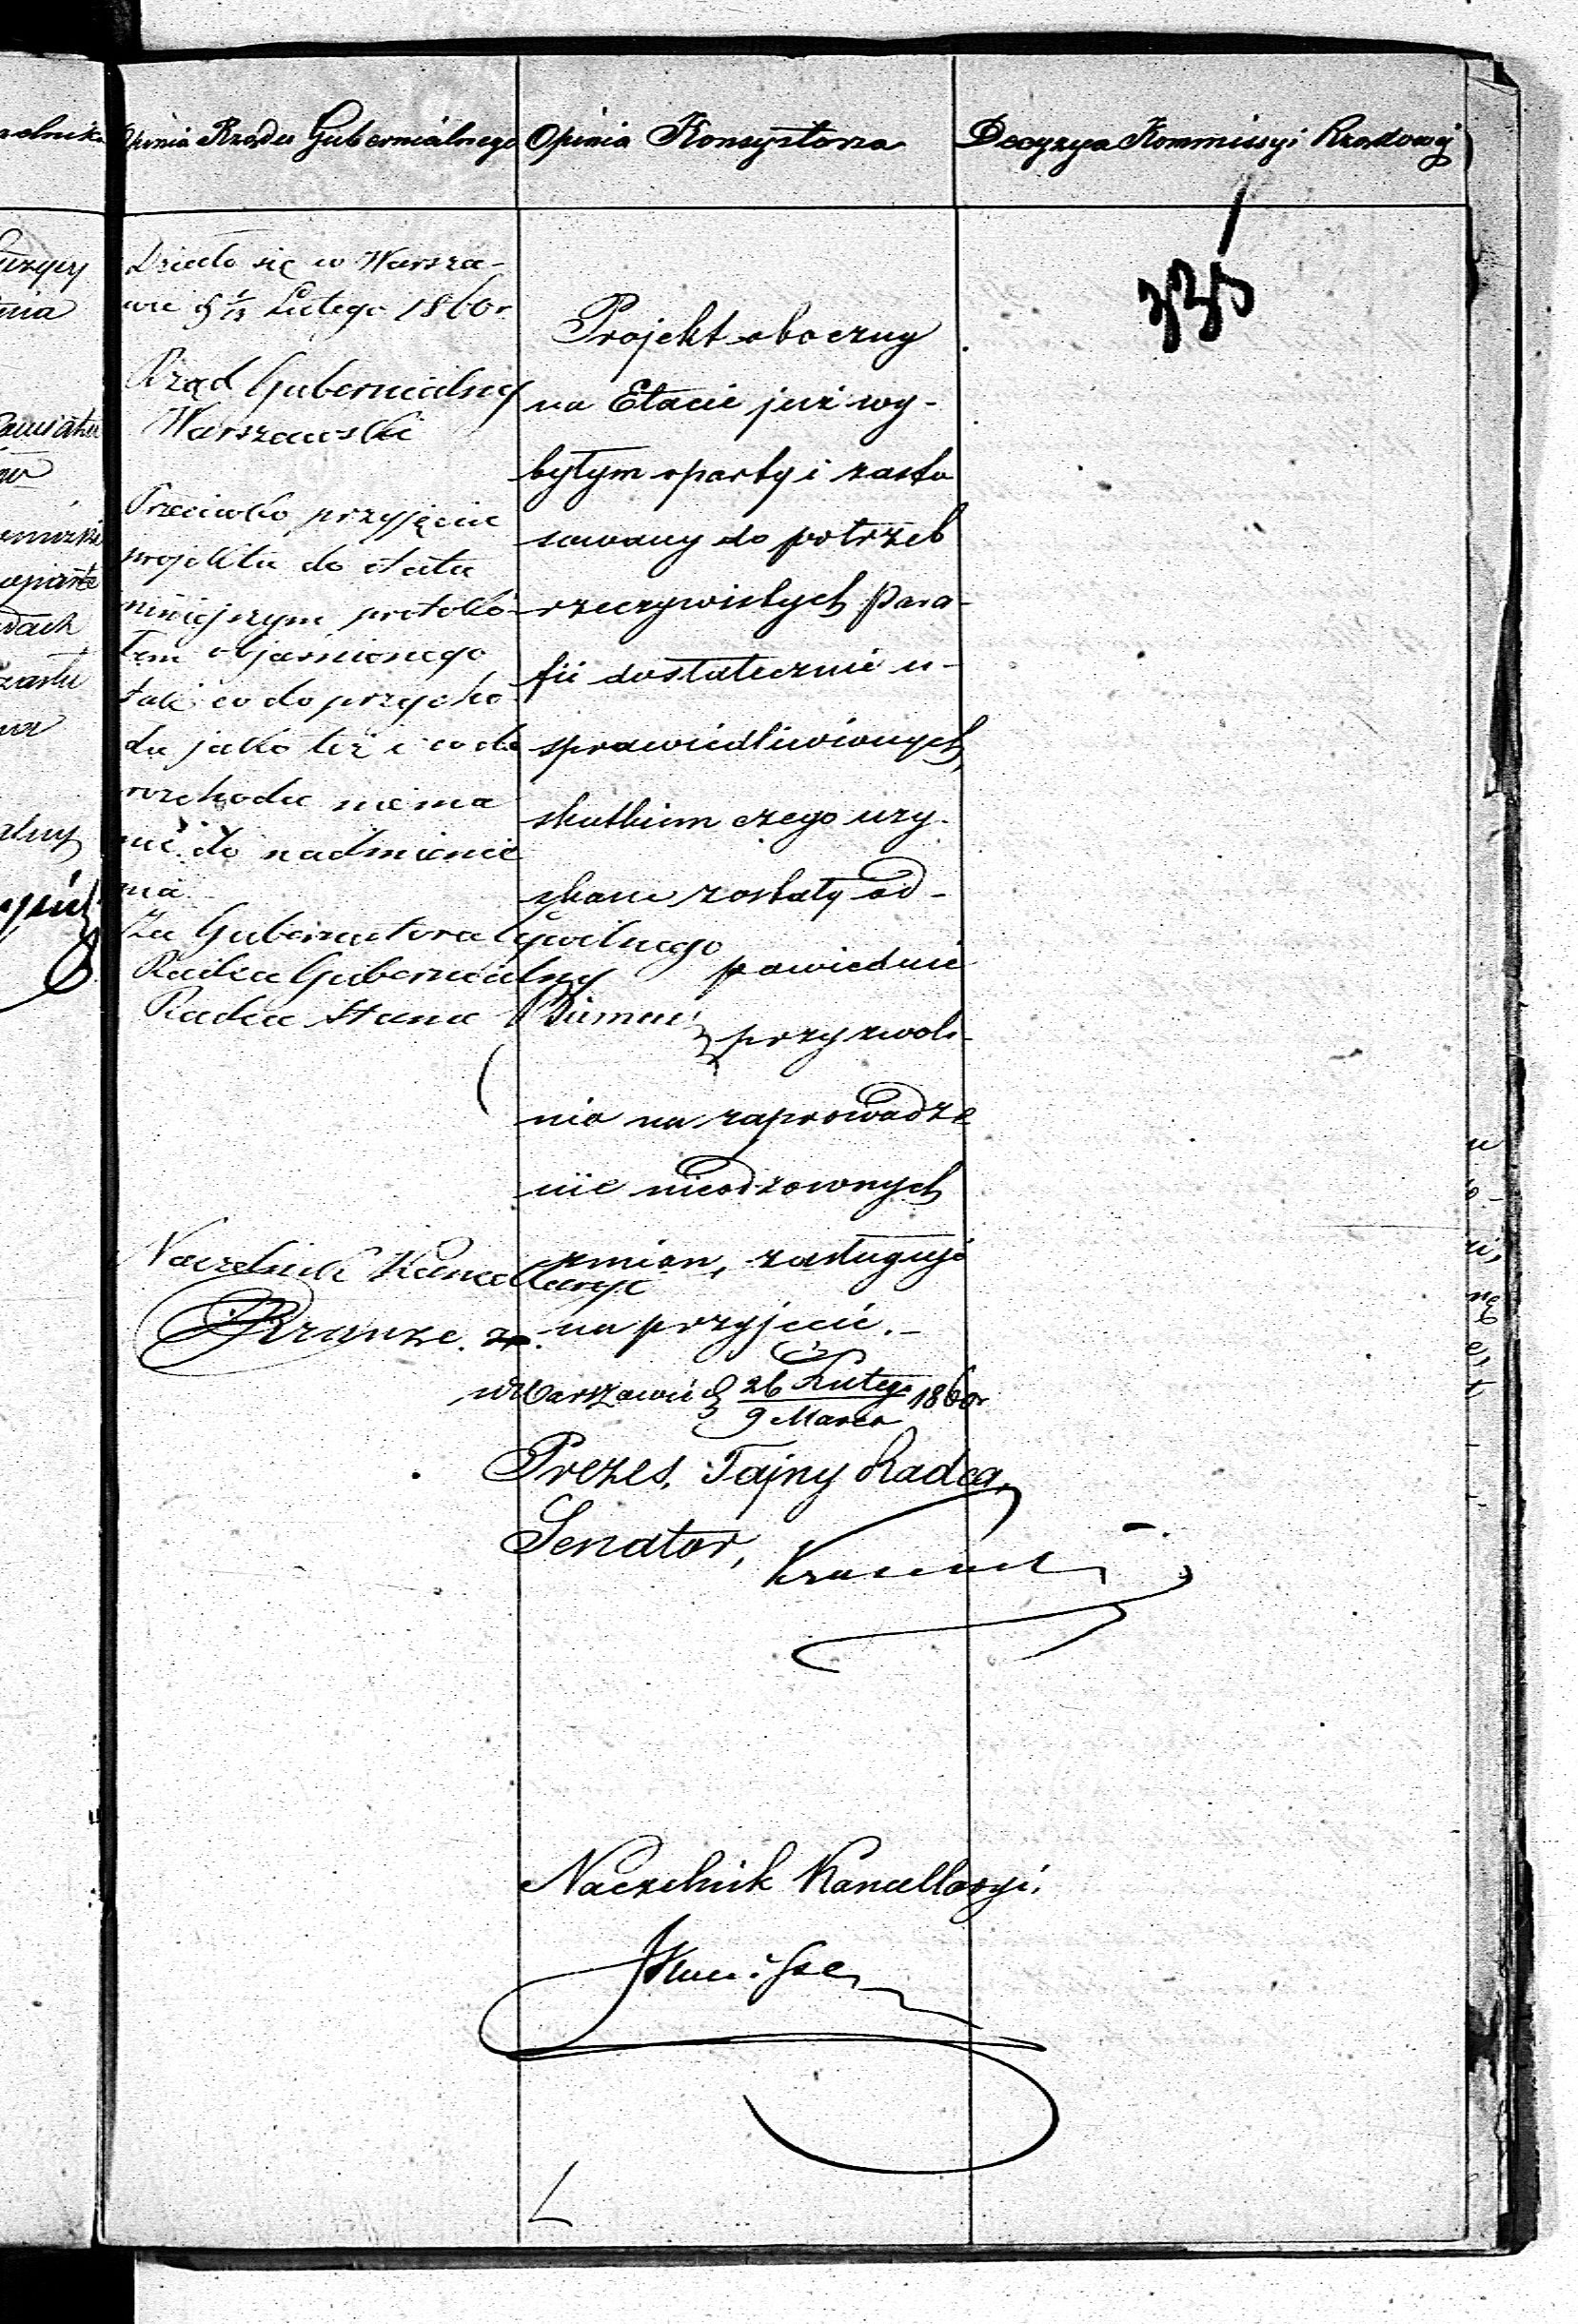 Opinia Rządu Gubernialnego
Działo się w Warsza-
wie d 1/13 Lutego 1860 r.
Rząd Gubernialny
Warszawski
Przeciwko przyjęciu
projektu do etatu
niniejszym protokó-
łem objaśnionego
tak co do przycho-
du jako też i co do
rozchodu niema
nic do nadmienie
nia
Za Gubernatora Cywilnego
Radca Gubernialny
Radca Stanu
Naczelnik Kancellaryi
Opinia Konsystorza
Projekt oboczny
na Etacie już wy-
byłym oparty i zasto
sowany do potrzeb
rzeczywistych Para-
fii dostatecznie u-
sprawiedliwionych,
skutkiem czego uzy-
skane zostały od-
powiednie
przyzwole-
nia na zaprowadze
nie nieodzownych
zmian, zasługuje
na przyjęcie.-
w Warszawie d 26 Lutego / 9 Marca 1860 r
Prezes, Tajny Radca,
Senator,
Naczelnik Kancellaryi.
Decyzya Kommissyi Rządowej
335